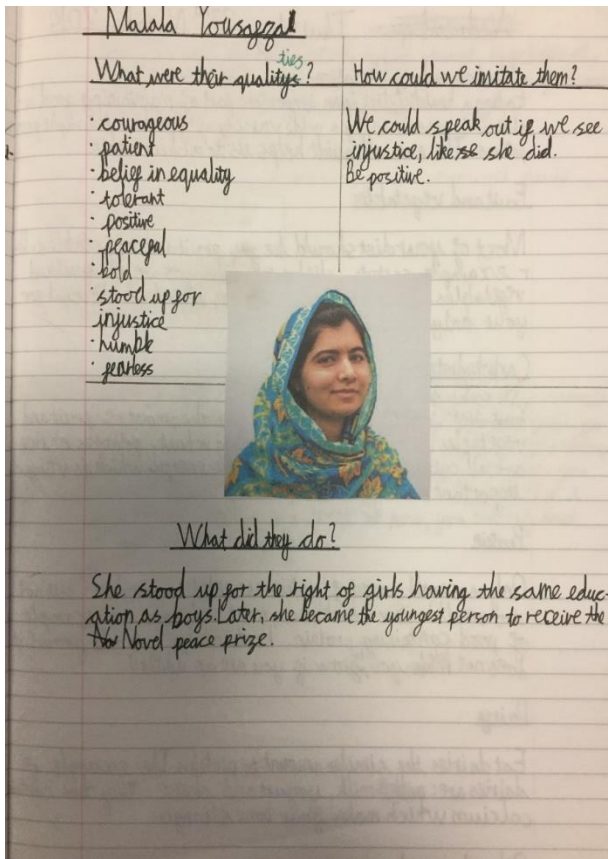 Malala Yousagzai
What were their qualityies?
How could we imitate them?
· courageous
· patient
· belief in equality
· tolerant
· positive
· peacegal
· bold
· stood up for
injustice
· humble
· fearless
We could speak out if we see
injustice, like she did.
Be positive.
What did they do?
She stood up for the right of girls having the same educ-
ation as boys. Later, she became the youngest person to receive the
Novel peace prize.